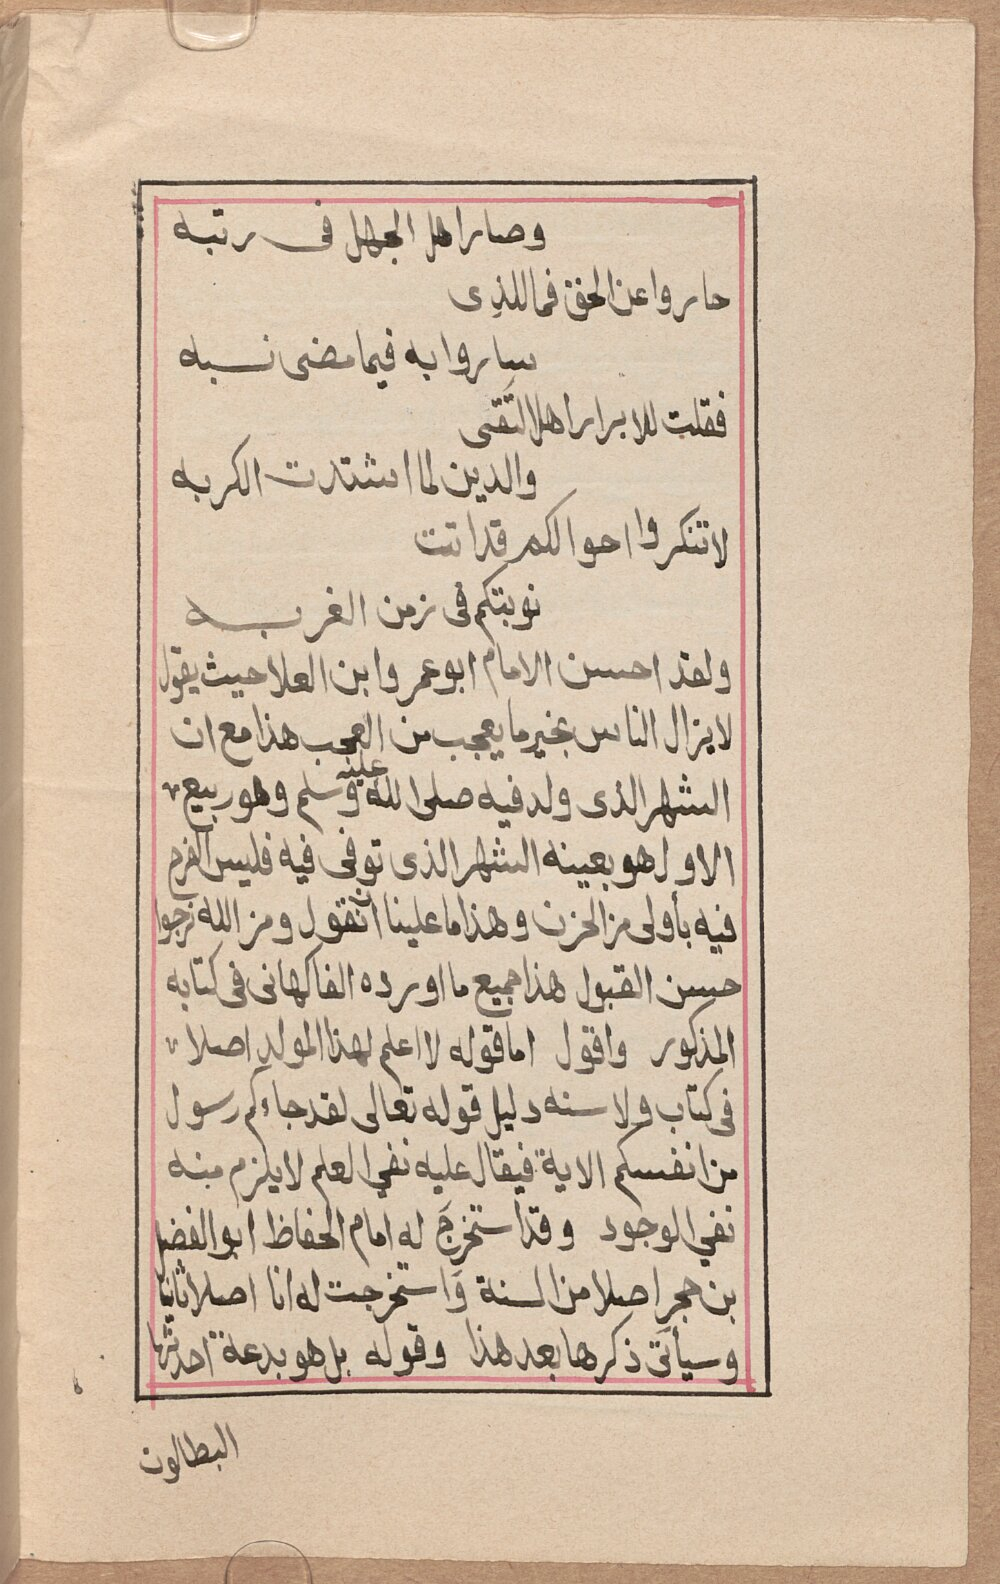 وصار اهل الجهل فى رتبه
حاروا عن الحق فما للذِى
ساروا به فيما مضى نسبه
فقلت للابرار اهل التُقَى
والدين لما اشتدت الكربه
لا تنكروا احوالكم قد اتت
نوبتكم فى زمن الغربه
ولقد احسن الامام ابو عمرو ابن العلا حيث يقول
لا يزال الناس بخير ما يعجب من العجب هذا مع ان
الشهر الذى ولد فيه صلى الله عليه وسلم وهو ربيع
الاول هو بعينه الشهر الذى توفى فيه فليس الفرح
فيه بأولى من الحزن وهذا ما علينا ان نقول ومن الله نرجوا
حسن القبول هذا جميع ما اورده الفاكهانى فى كتابه
المذكور واقول اما قوله لا اعلم لهذا المولد اصلا
فى كتاب ولا سنه دليل قوله تعالى لقد جاءكم رسول
من انفسكم الاية فيقال عليه نفي العلم لا يلزم منه
نفي الوجود وقد استخرجَ له امام الحفاظ ابو الفضل
بن حجر اصلا من السنة وَاستخرجت له انا اصلا ثانيا
وسيأتى ذكرها بعد هذا وقوله بل هو بدعة احدثها
البطالون